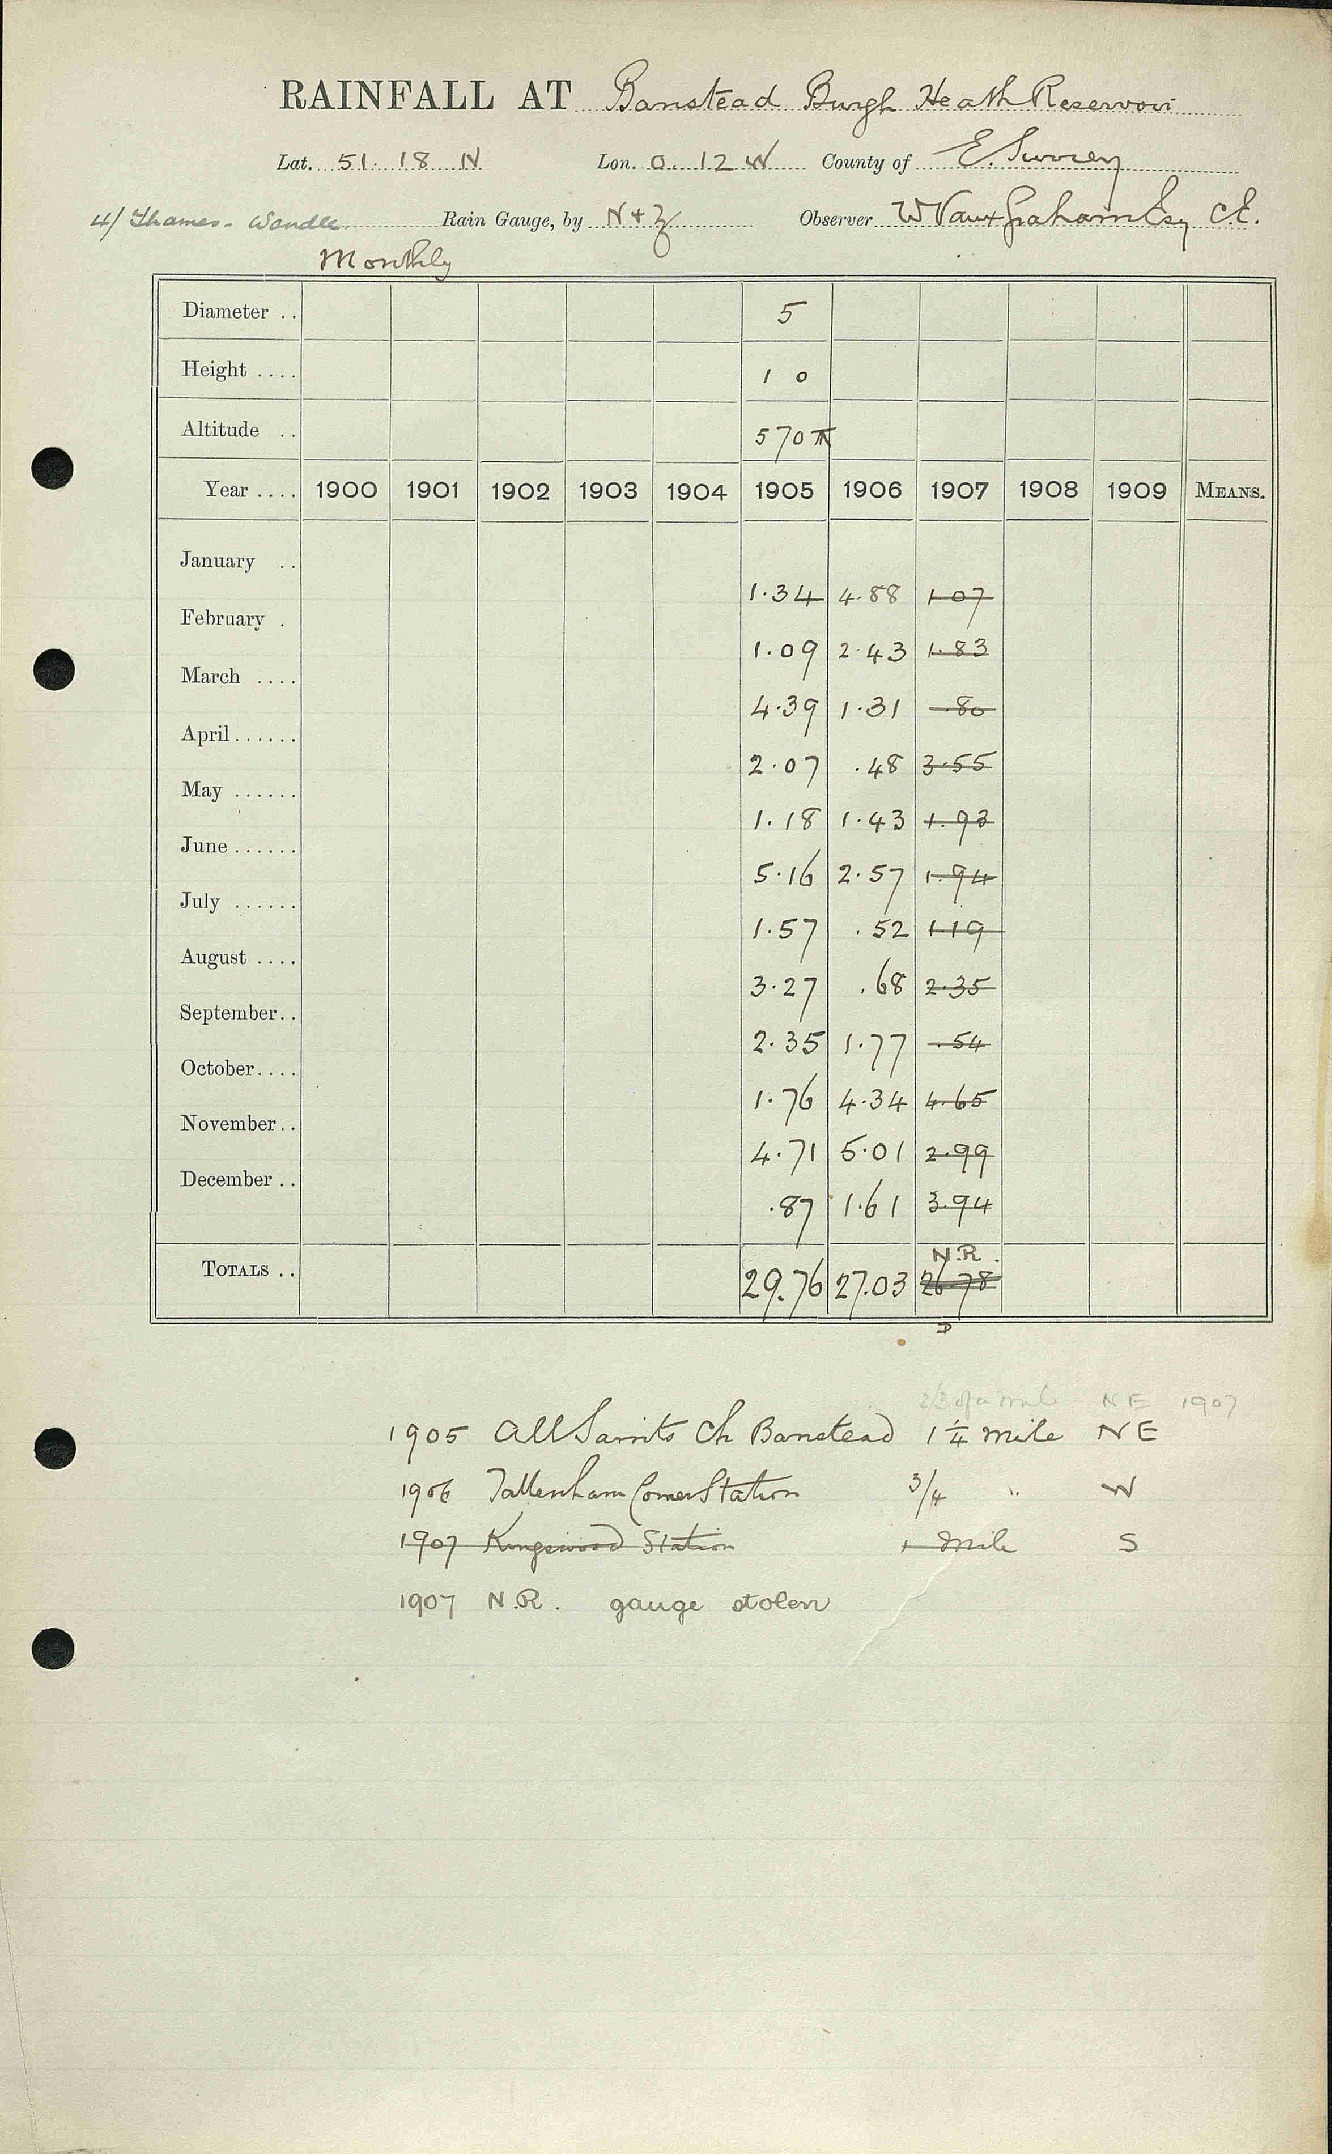 RAINFALL AT Banstead Burgh Heath Reservoir
Lat. 51. 18 N Lon. 0. 12 W County of E. Surrey
4/ Thames - Wandle Rain Gauge, by N + Z Observer W Vaux Graham Esq C.E.
Monthly
Diameter .. 5
Height .... 1 0
Altitude .. 570 ft
Year .... 1900 1901 1902 1903 1904 1905 1906 1907 1908 1909 MEANS.
January .. 1.34 4.88 1.07
February . 1.09 2.43 1.83
March .... 4.39 1.31 .80
April ...... 2.07 .48 3.55
May ...... 1.18 1.43 1.93
June ...... 5.16 2.57 1.94
July ...... 1.57 .52 1.19
August .... 3.27 .68 2.35
September.. 2.35 1.77 .54
October.... 1.76 4.34 4.65
November.. 4.71 5.01 2.99
December .. .87 1.61 3.94
N.R.
TOTALS .. 29.76 27.03 26.78
2/3 of a mile NE 1907
1905 All Saints Ch Banstead 1 1/4 mile NE
1906 Tattenham Corner Station 3/4 " W
1907 Kingswood Station 1 Mile S
1907 N.R. gauge stolen